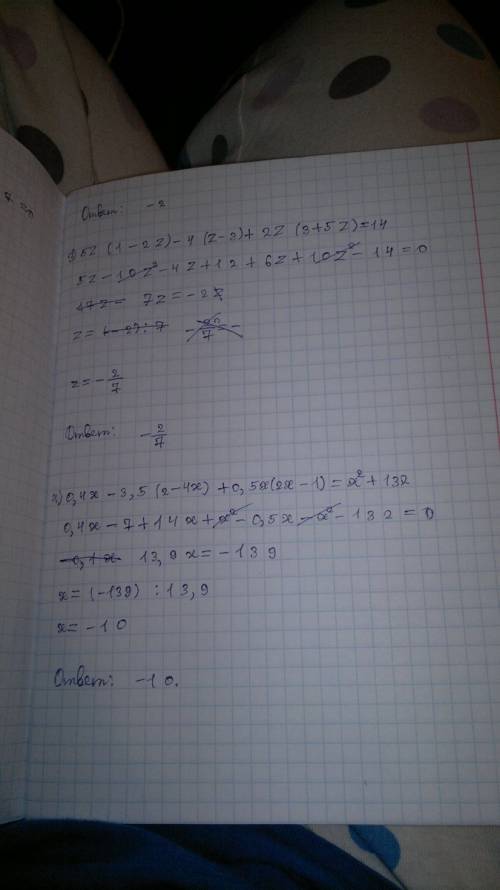 Ответ: -2
5z (1-2z)-4(z-3)+2z(3+5z)=14
5z-10z²-4z+12+6z+10z²-14=0
7z=-2
z=
z=-2/7
Ответ: -2/7
0,4x-3,5(2-4x)+0,5x(2x-1)=x²+132
0,4x-7+14x+x²-0,5x-x²-132=0
13,9x=-139
x=(-139):13,9
x=-10
Ответ: -10.